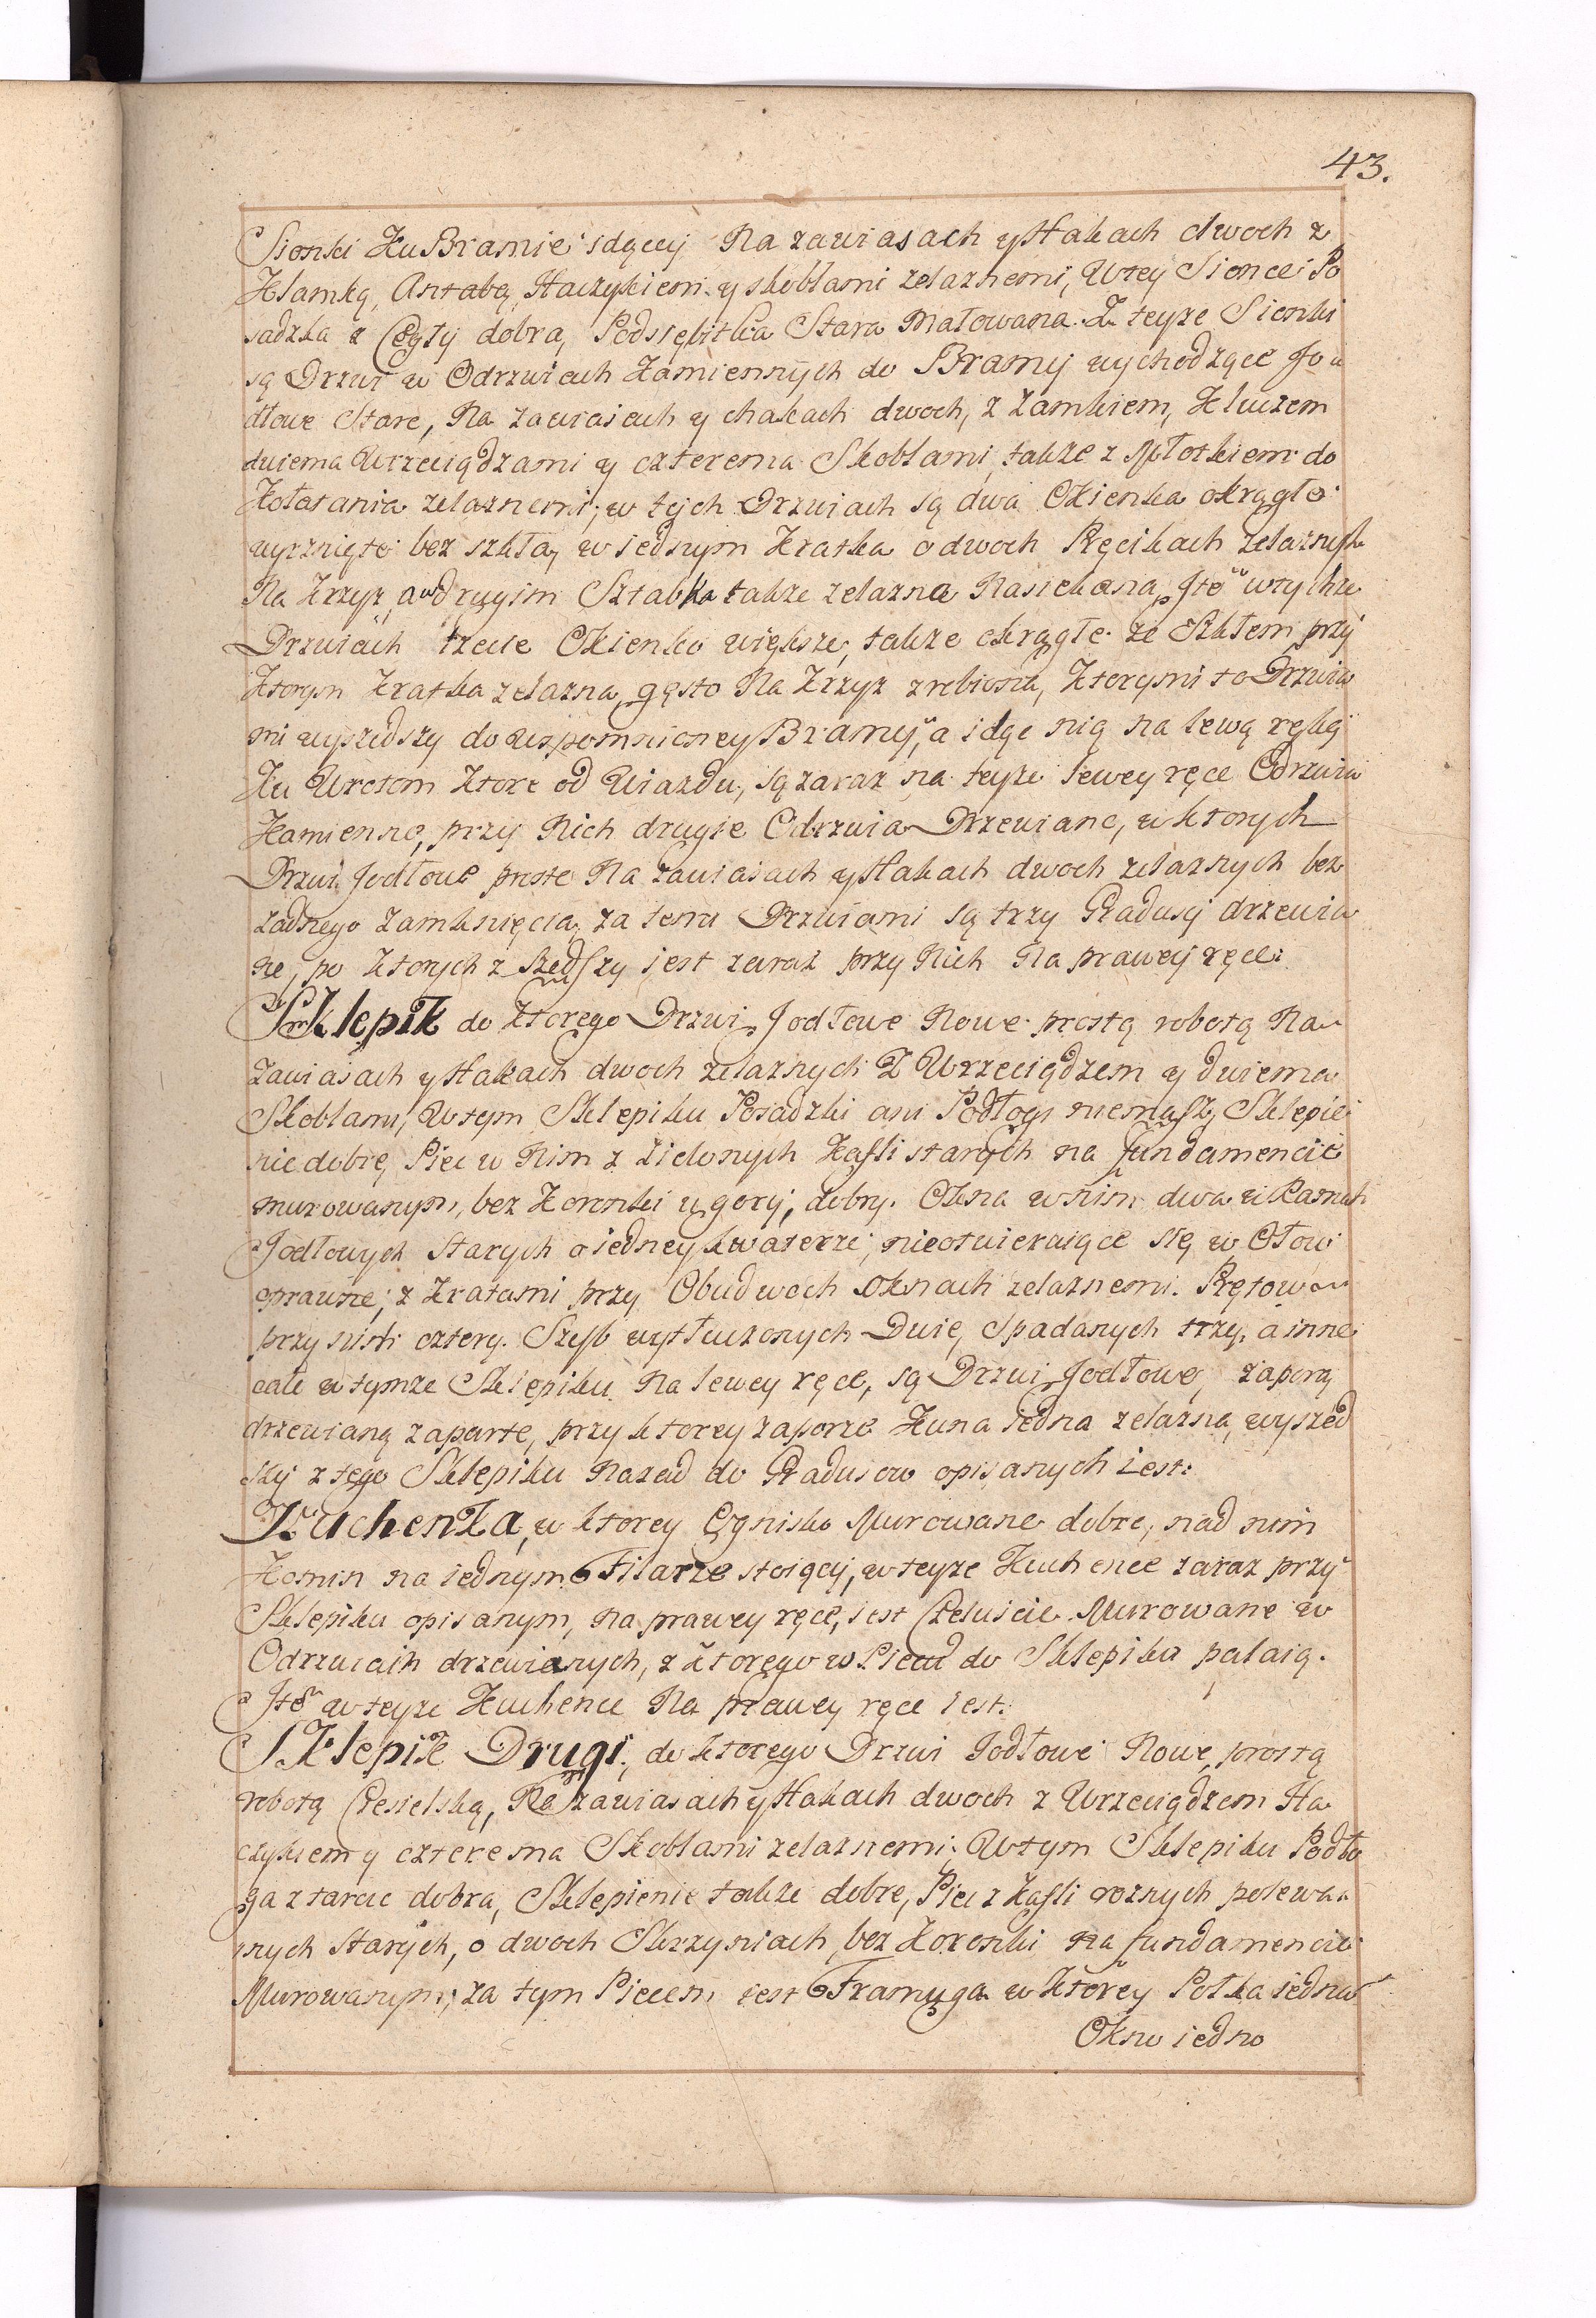 43.
Sionki Ku Bramie idący Na zawiasach y Hakach dwoch z
Klamką, Antabą, Haczykiem y skoblami zelaznemi, W tey Sionce Po
sadzka z Cegły dobra, Podsiębitka Stara Malowana. Z teyże Sionki
są Drzwi w Odrzwiach Kamiennych do Bramy wychodzące Jo
dłowe Stare, Na zawiasach y chakach dwoch, z Zamkiem, Kluczem
dwiema Wrzeciądzami y czterema Skoblami, także z Młotkiem do
Kołatania zelaznemi; w tych Drzwiach są dwa Okienka okrągłe
wyrznięte bez szkła, w jednym Kratka o dwoch Pręcikach zelaznych
Na Krzyż, a w drugim Sztabka także zelazna Nasiekana, Ite w tychże
Drzwiach trzecie Okienko większe, także okrągłe ze Szkłem, przy
Ktorym Kratka zelazna, gęsto Na Krzyż zrobiona, Ktorymi to Drzwia
mi wyszedszy do wspomnioney Bramy, a idąc nią na lewą rękę
Ku Wrotom Ktore od Wiazdu, są zaraz na teyże lewey ręce Odrzwia
Kamienne, przy Nich drugie Odrzwia Drzewiane, w ktorych
Drzwi Jodłowe proste Na zawiasach y Hakach dwoch zelaznych bez
zadnego zamknięcia, za temi Drzwiami są trzy Gradusy drzewia
ne, po ktorych zszedszy iest zaraz przy Nich Na prawey ręce:
Sklepik do Ktorego Drzwi Jodłowe Nowe prostą robotą Na
zawiasach y Hakach dwoch zelaznych Z Wrzeciądzem y dwiema
Skoblami, W tym Sklepiku Posadzki ani Podłogi niemasz, Sklepie
nie dobre, Piec w Nim z zielonych Kafli starych na fundamencie
murowanym, bez Koronki u gory, dobry. Okna w nim dwa w Ramach
Jodłowych Starych o iedney kwaterze, nieotwieraiące się w Ołow
oprawne, z Kratami przy Obudwoch oknach zelaznemi. Prętow
przy nich cztery. Szyb wytłuczonych Dwie, Spadanych trzy, a inne
całe w tymże Sklepiku Na lewey ręce, są Drzwi Jodłowe, zaporą
drzewianą zaparte, przy ktorey zaporze Kuna iedna zelazna, wyszed
szy z tego Sklepiku Nazad do Gradusow opisanych iest:
Kuchenka, w ktorey Ognisko Murowane dobre, nad nim
Komin na iednym Filarze stoiący, w teyże Kuchence zaraz przy
Sklepiku opisanym, Na prawey ręce, iest Czeluscie Murowane w
Odrzwiach drzewianych, z Ktorego w Piecu do Sklepika palaią.
Ite w teyże Kuchence Na prawey ręce iest:
Sklepik Drugi, do ktorego Drzwi Jodłowe Nowe, prostą
robotą Ciesielską, Na zawiasach y Hakach dwoch z Wrzeciądzem Ha
czykiem y czterema Skoblami zelaznemi; W tym Sklepiku Podło
ga z tarcic dobra, Sklepienie także dobre, Piec z Kafli roznych polewa
nych Starych, o dwoch Skrzyniach, bez Koronki na fundamencie
Murowanym; za tym Piecem iest Framuga w Ktorey Połka iedna
Okno iedno